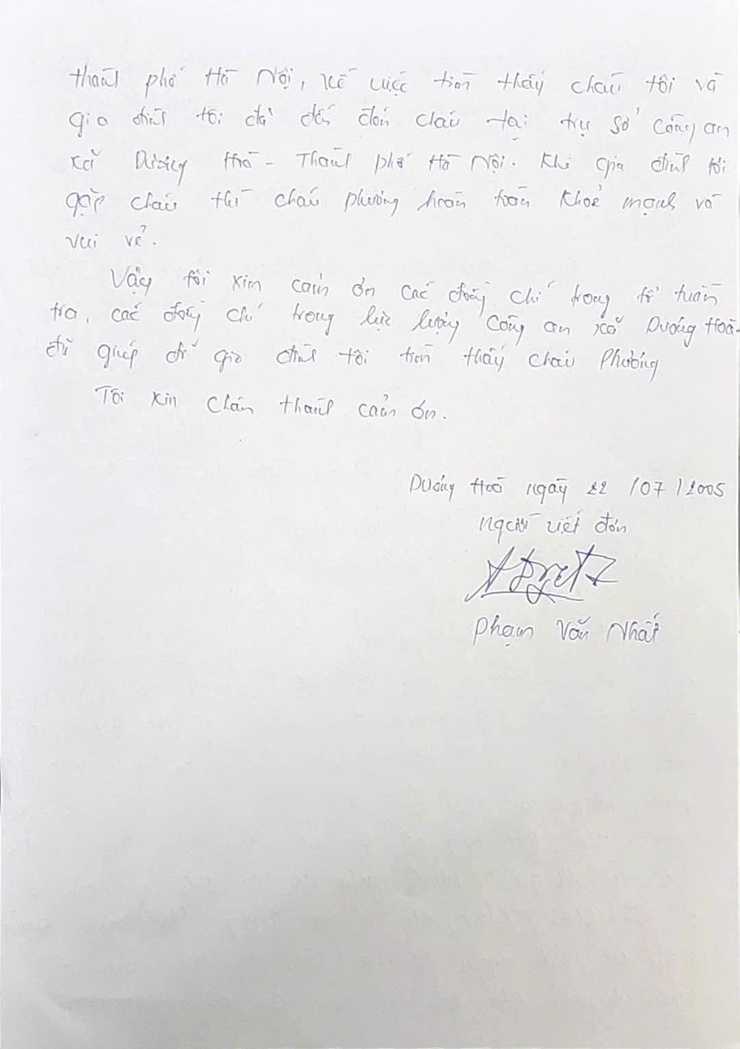 thành phố Hà Nội, về việc tìm thấy cháu tôi và
gia đình tôi đã đến đón cháu tại trụ sở Công an
xã Dương Hoà - Thành phố Hà Nội. Khi gia đình tôi
gặp cháu thì cháu Phương hoàn toàn khoẻ mạnh và
vui vẻ.
Vậy tôi xin cảm ơn các đồng chí trong tổ tuần
tra, các đồng chí trong lực lượng Công an xã Dương Hoà
đã giúp đỡ gia đình tôi tìm thấy cháu Phương
Tôi xin chân thành cảm ơn.
Dương Hoà ngày 22 /07/2005
Người viết đơn
Phạm Văn Nhất